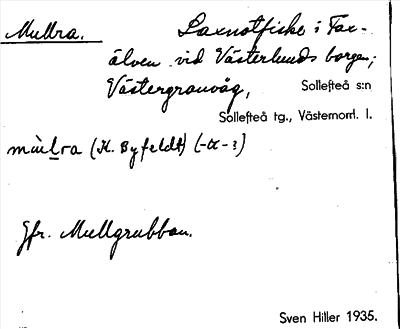 Mullra. Laxnotfiske i Fax-
älven vid Västerlunds borgen;
Västergransåg, Sollefteå s:n
Sollefteå tg., Västernorrl. l.
mùlra (K. Byfeldt) (-ɑ-?)
Jfr. Mullgrubban.
Sven Hiller 1935.